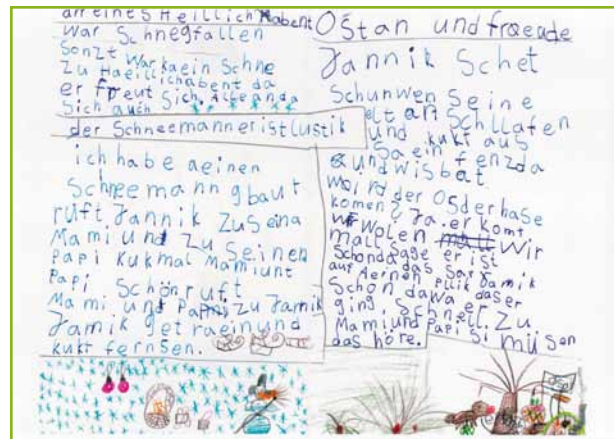 an eines Heillichabent
war Schnegfallen
Sonzt war kaein Schne
Zu Haeillichabent da
er freut Sich. Alle anda
Sich auch
der Schneemanneristlustik
ich habe aeinen
Schneemann gbaut
ruft Jannik Zuseina
Mami und Zu Seinen
Papi kukmal Mamiunt
Papi Schön ruft
Mami und Papi zu Jannik
Jannik get raeinund
kukt fernsen.
Ostan und fraeude
Jannik Schet
Schunwen Seine
elt an Schllafen
und kukt aus
Sa ein fenzda
und wisbat
wird der Osderhase
komen? Ja. er komt
Wolen Wir
mall
Schon er ist
auf Aeinen
Schon da wa das er
ging. Schnell. Zu
Mami und Papi Si müsen
das höre.